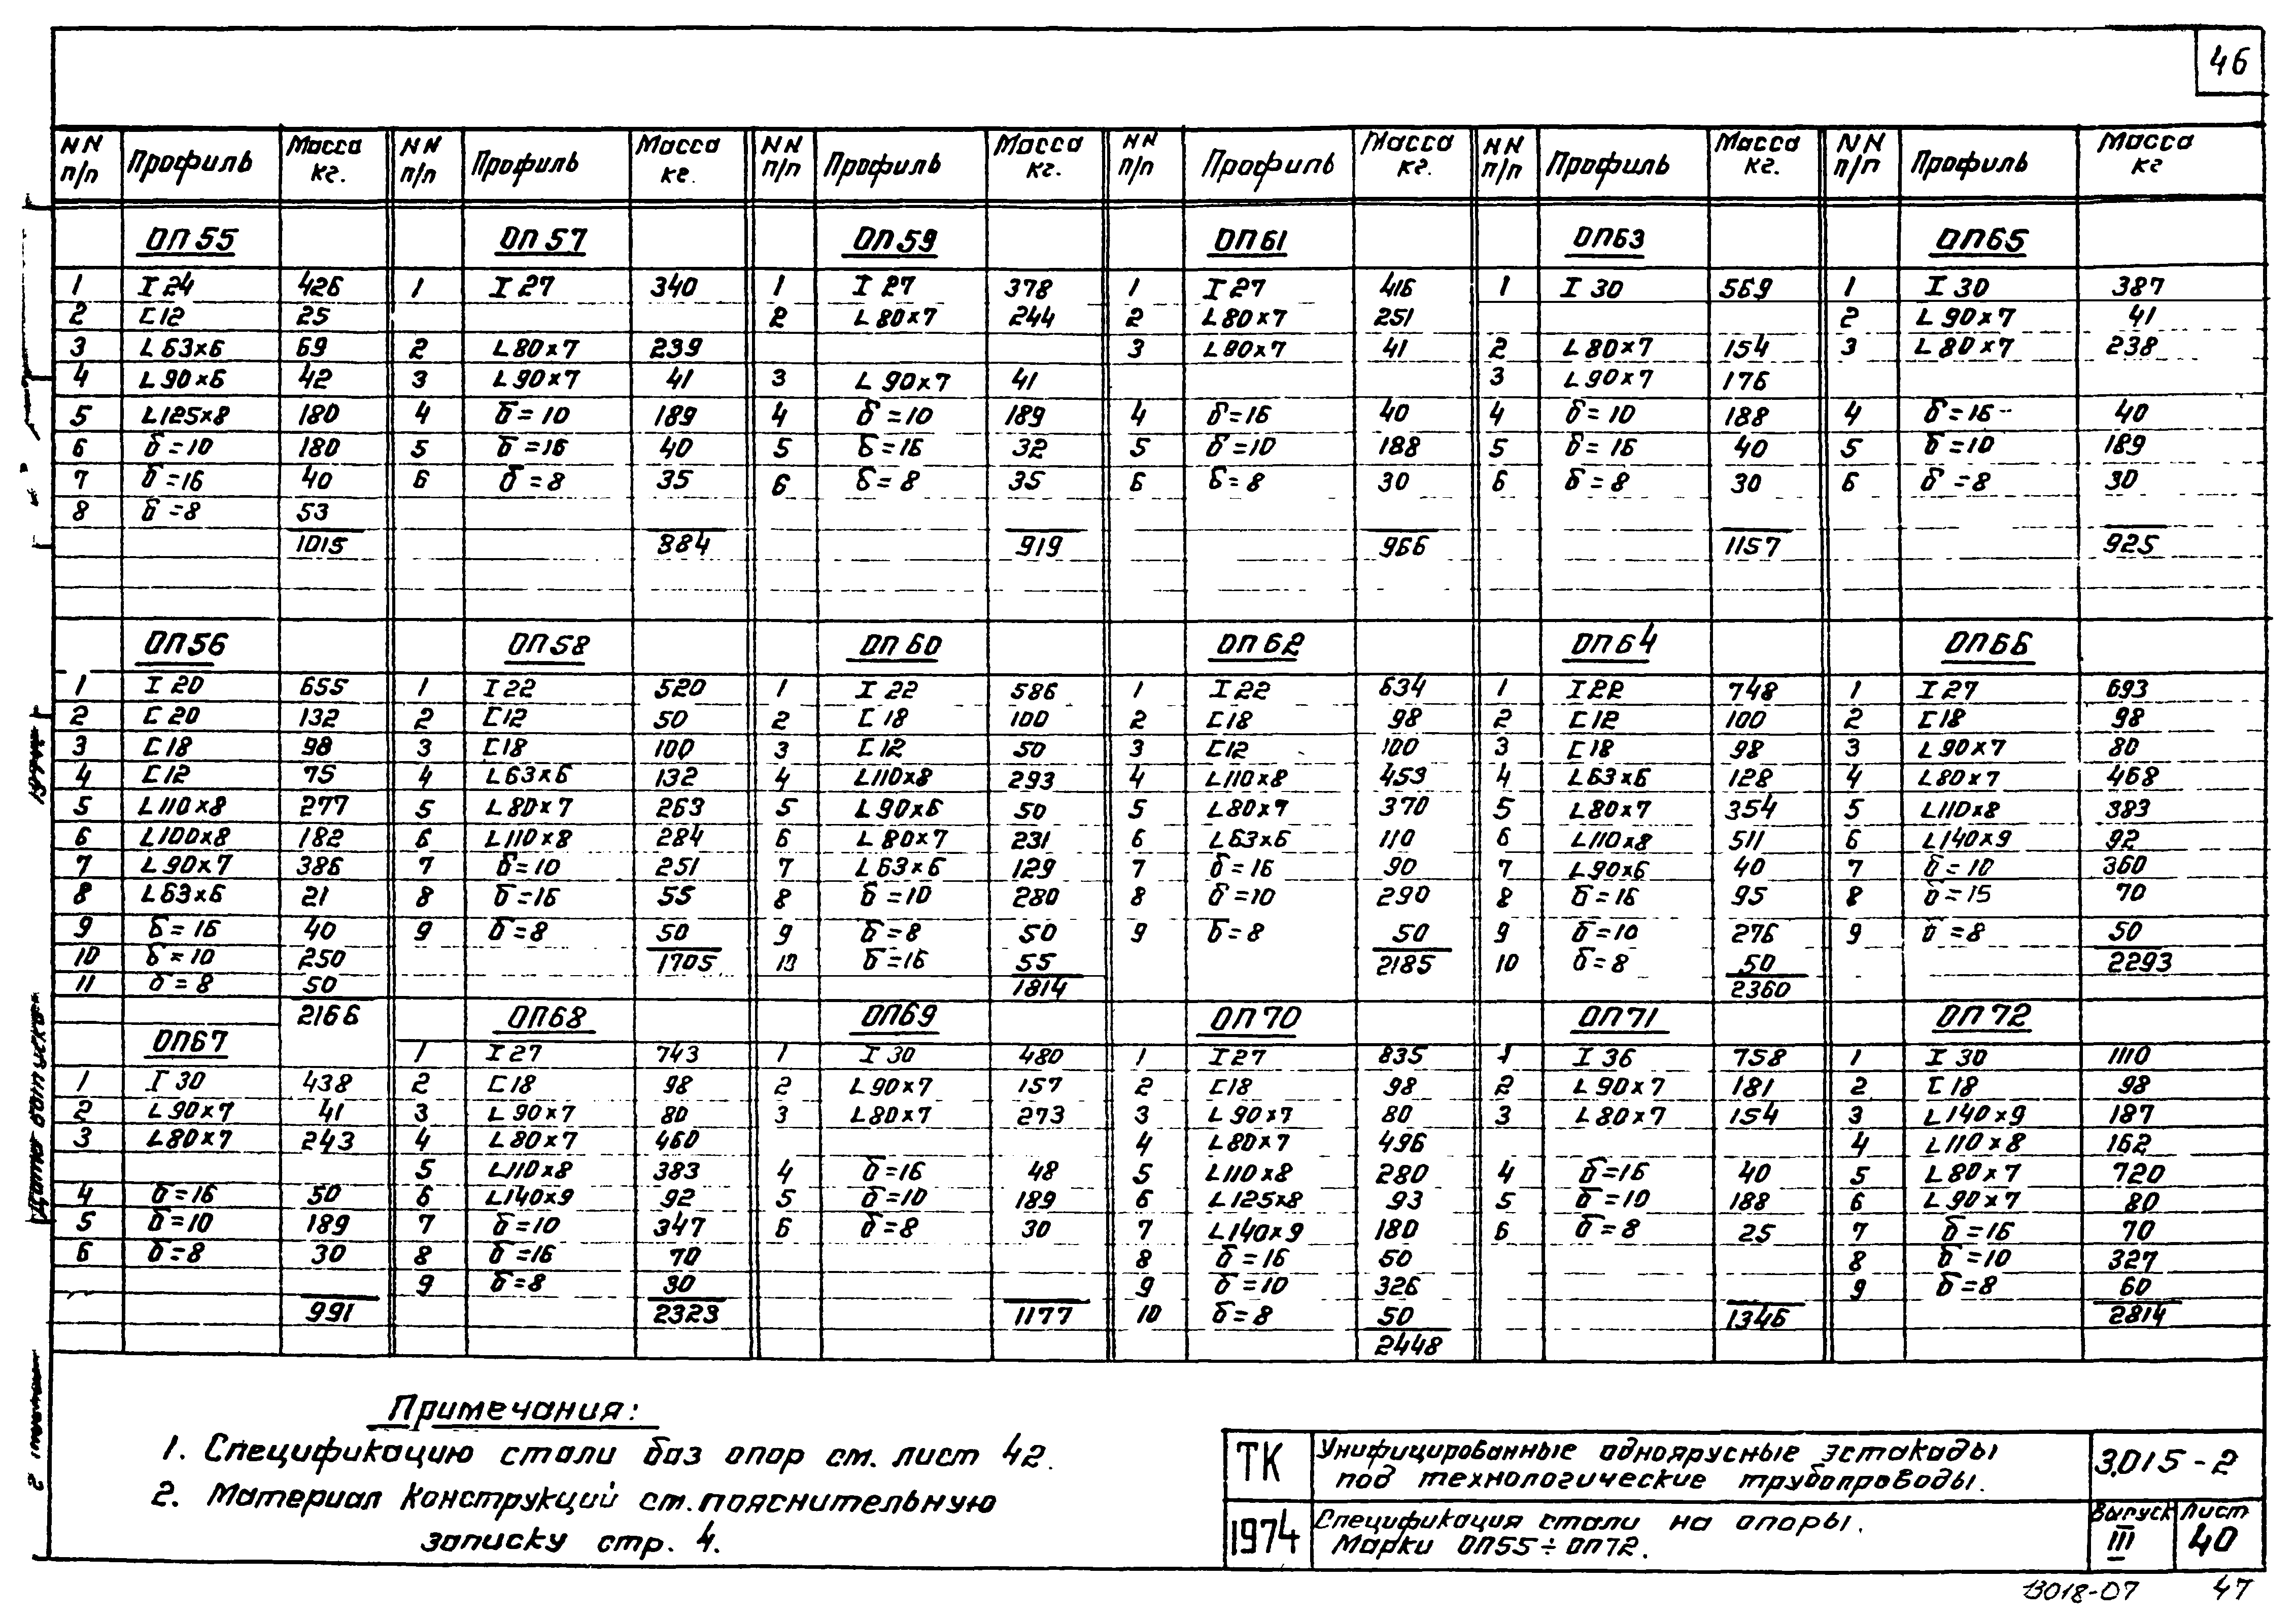 46
NN п/п Профиль Масса кг. NN п/п Профиль Масса кг. NN п/п Профиль Масса кг. NN п/п Профиль Масса кг. NN п/п Профиль Масса кг. NN п/п Профиль Масса кг
ОП55
1 I 24 426
2 [12 25
3 L63x6 69
4 L90x6 42
5 L125x8 180
6 δ=10 180
7 δ=16 40
8 δ=8 53
1015
ОП57
1 I 27 340
2 L80x7 239
3 L90x7 41
4 δ=10 189
5 δ=16 40
6 δ=8 35
884
ОП59
1 I 27 378
2 L80x7 244
3 L90x7 41
4 δ=10 189
5 δ=16 32
6 δ=8 35
919
ОП61
1 I 27 416
2 L80x7 251
3 L90x7 41
4 δ=16 40
5 δ=10 188
6 δ=8 30
966
ОП63
1 I 30 569
2 L80x7 154
3 L90x7 176
4 δ=10 188
5 δ=16 40
6 δ=8 30
1157
ОП65
1 I 30 387
2 L90x7 41
3 L80x7 238
4 δ=16 40
5 δ=10 189
6 δ=8 30
925
ОП56
1 I 20 655
2 [20 132
3 [18 98
4 [12 75
5 L110x8 277
6 L100x8 182
7 L90x7 386
8 L63x6 21
9 δ=16 40
10 δ=10 250
11 δ=8 50
2166
ОП58
1 I 22 520
2 [12 50
3 [18 100
4 L63x6 132
5 L80x7 263
6 L110x8 284
7 δ=10 251
8 δ=16 55
9 δ=8 50
1705
ОП60
1 I 22 586
2 [18 100
3 [12 50
4 L110x8 293
5 L90x6 50
6 L80x7 231
7 L63x6 129
8 δ=10 280
9 δ=8 50
10 δ=16 55
1814
ОП62
1 I 22 634
2 [18 98
3 [12 100
4 L110x8 453
5 L80x7 370
6 L63x6 110
7 δ=16 90
8 δ=10 290
9 δ=8 50
2185
ОП64
1 I 22 748
2 [12 100
3 [18 98
4 L63x6 128
5 L80x7 354
6 L110x8 511
7 L90x6 40
8 δ=16 95
9 δ=10 276
10 δ=8 50
2360
ОП66
1 I 27 693
2 [18 98
3 L90x7 80
4 L80x7 468
5 L110x8 383
6 L140x9 92
7 δ=10 360
8 δ=15 70
9 δ=8 50
2293
ОП67
1 I 30 438
2 L90x7 41
3 L80x7 243
4 δ=16 50
5 δ=10 189
6 δ=8 30
991
ОП68
1 I 27 743
2 [18 98
3 L90x7 80
4 L80x7 460
5 L110x8 383
6 L140x9 92
7 δ=10 347
8 δ=16 70
9 δ=8 30
2323
ОП69
1 I 30 480
2 L90x7 157
3 L80x7 273
4 δ=16 48
5 δ=10 189
6 δ=8 30
1177
ОП70
1 I 27 835
2 [18 98
3 L90x7 80
4 L80x7 496
5 L110x8 280
6 L125x8 93
7 L140x9 180
8 δ=16 50
9 δ=10 326
10 δ=8 50
2448
ОП71
1 I 36 758
2 L90x7 181
3 L80x7 154
4 δ=16 40
5 δ=10 188
6 δ=8 25
1346
ОП72
1 I 30 1110
2 [18 98
3 L140x9 187
4 L110x8 162
5 L80x7 720
6 L90x7 80
7 δ=16 70
8 δ=10 327
9 δ=8 60
2814
Примечания:
1. Спецификацию стали баз опор см. лист 42.
2. Материал конструкций см. пояснительную
записку стр. 4.
ТК
Унифицированные одноярусные эстакады
под технологические трубопроводы.
3.015-2
1974
Спецификация стали на опоры.
Марки ОП55÷ОП72.
Выпуск III
Лист 40
13018-07 47
Дата выпуска